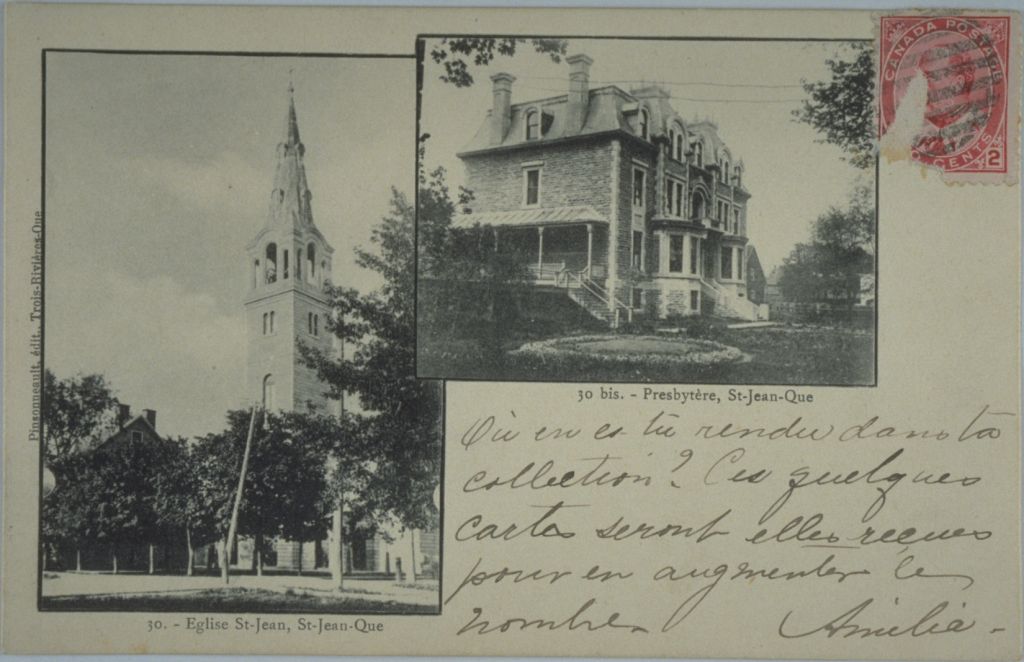 CANADA POSTAGE
CENTS
2
Pinsonneault, édit., Trois-Rivières-Que
30 bis. - Presbytère, St-Jean-Que
Où en es tu rendu dans ta
collection? Ces quelques
cartes seront elles reçues
pour en augmenter le
nombre. Amélia.-
30. - Eglise St-Jean, St-Jean-Que